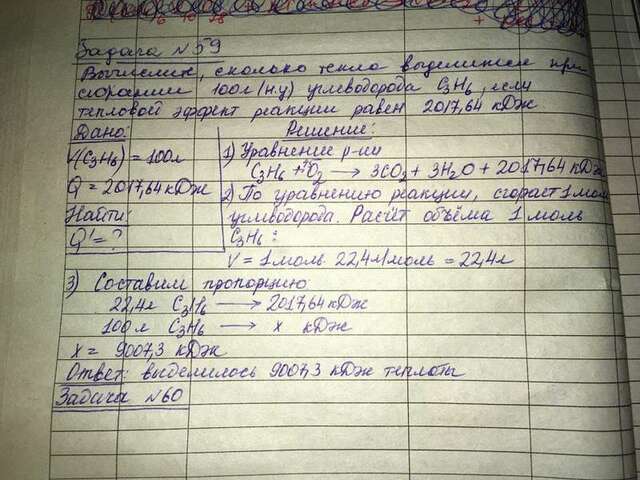 Задача №59
Вычислить, сколько тепла выделится при
сгорании 100л (н.у) углеводорода C3H6, если
тепловой эффект реакции равен 2017,64 кДж
Дано:
V(C3H6) = 100л
Q = 2017,64 кДж
Найти:
Q' = ?
Решение:
1) Уравнение р-ии
C3H6 + O2 → 3CO2 + 3H2O + 2017,64 кДж
2) По уравнению реакции, сгорает 1 моль
углеводорода. Расчёт объёма 1 моль
C3H6:
V = 1 моль · 22,4 л/моль = 22,4 л
3) Составим пропорцию
22,4л C3H6 → 2017,64 кДж
100 л C3H6 → x кДж
x = 9007,3 кДж
Ответ: выделилось 9007,3 кДж теплоты
Задача №60